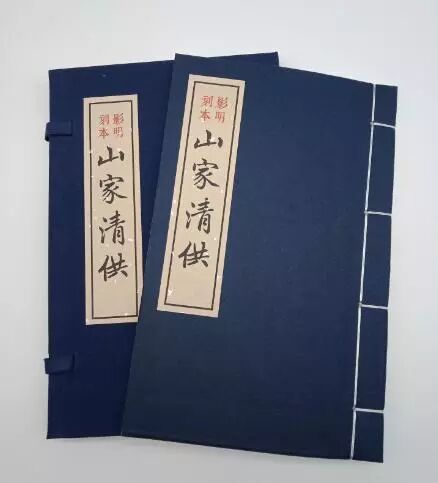 影明
刻本
山家清供
影明
刻本
山家清供